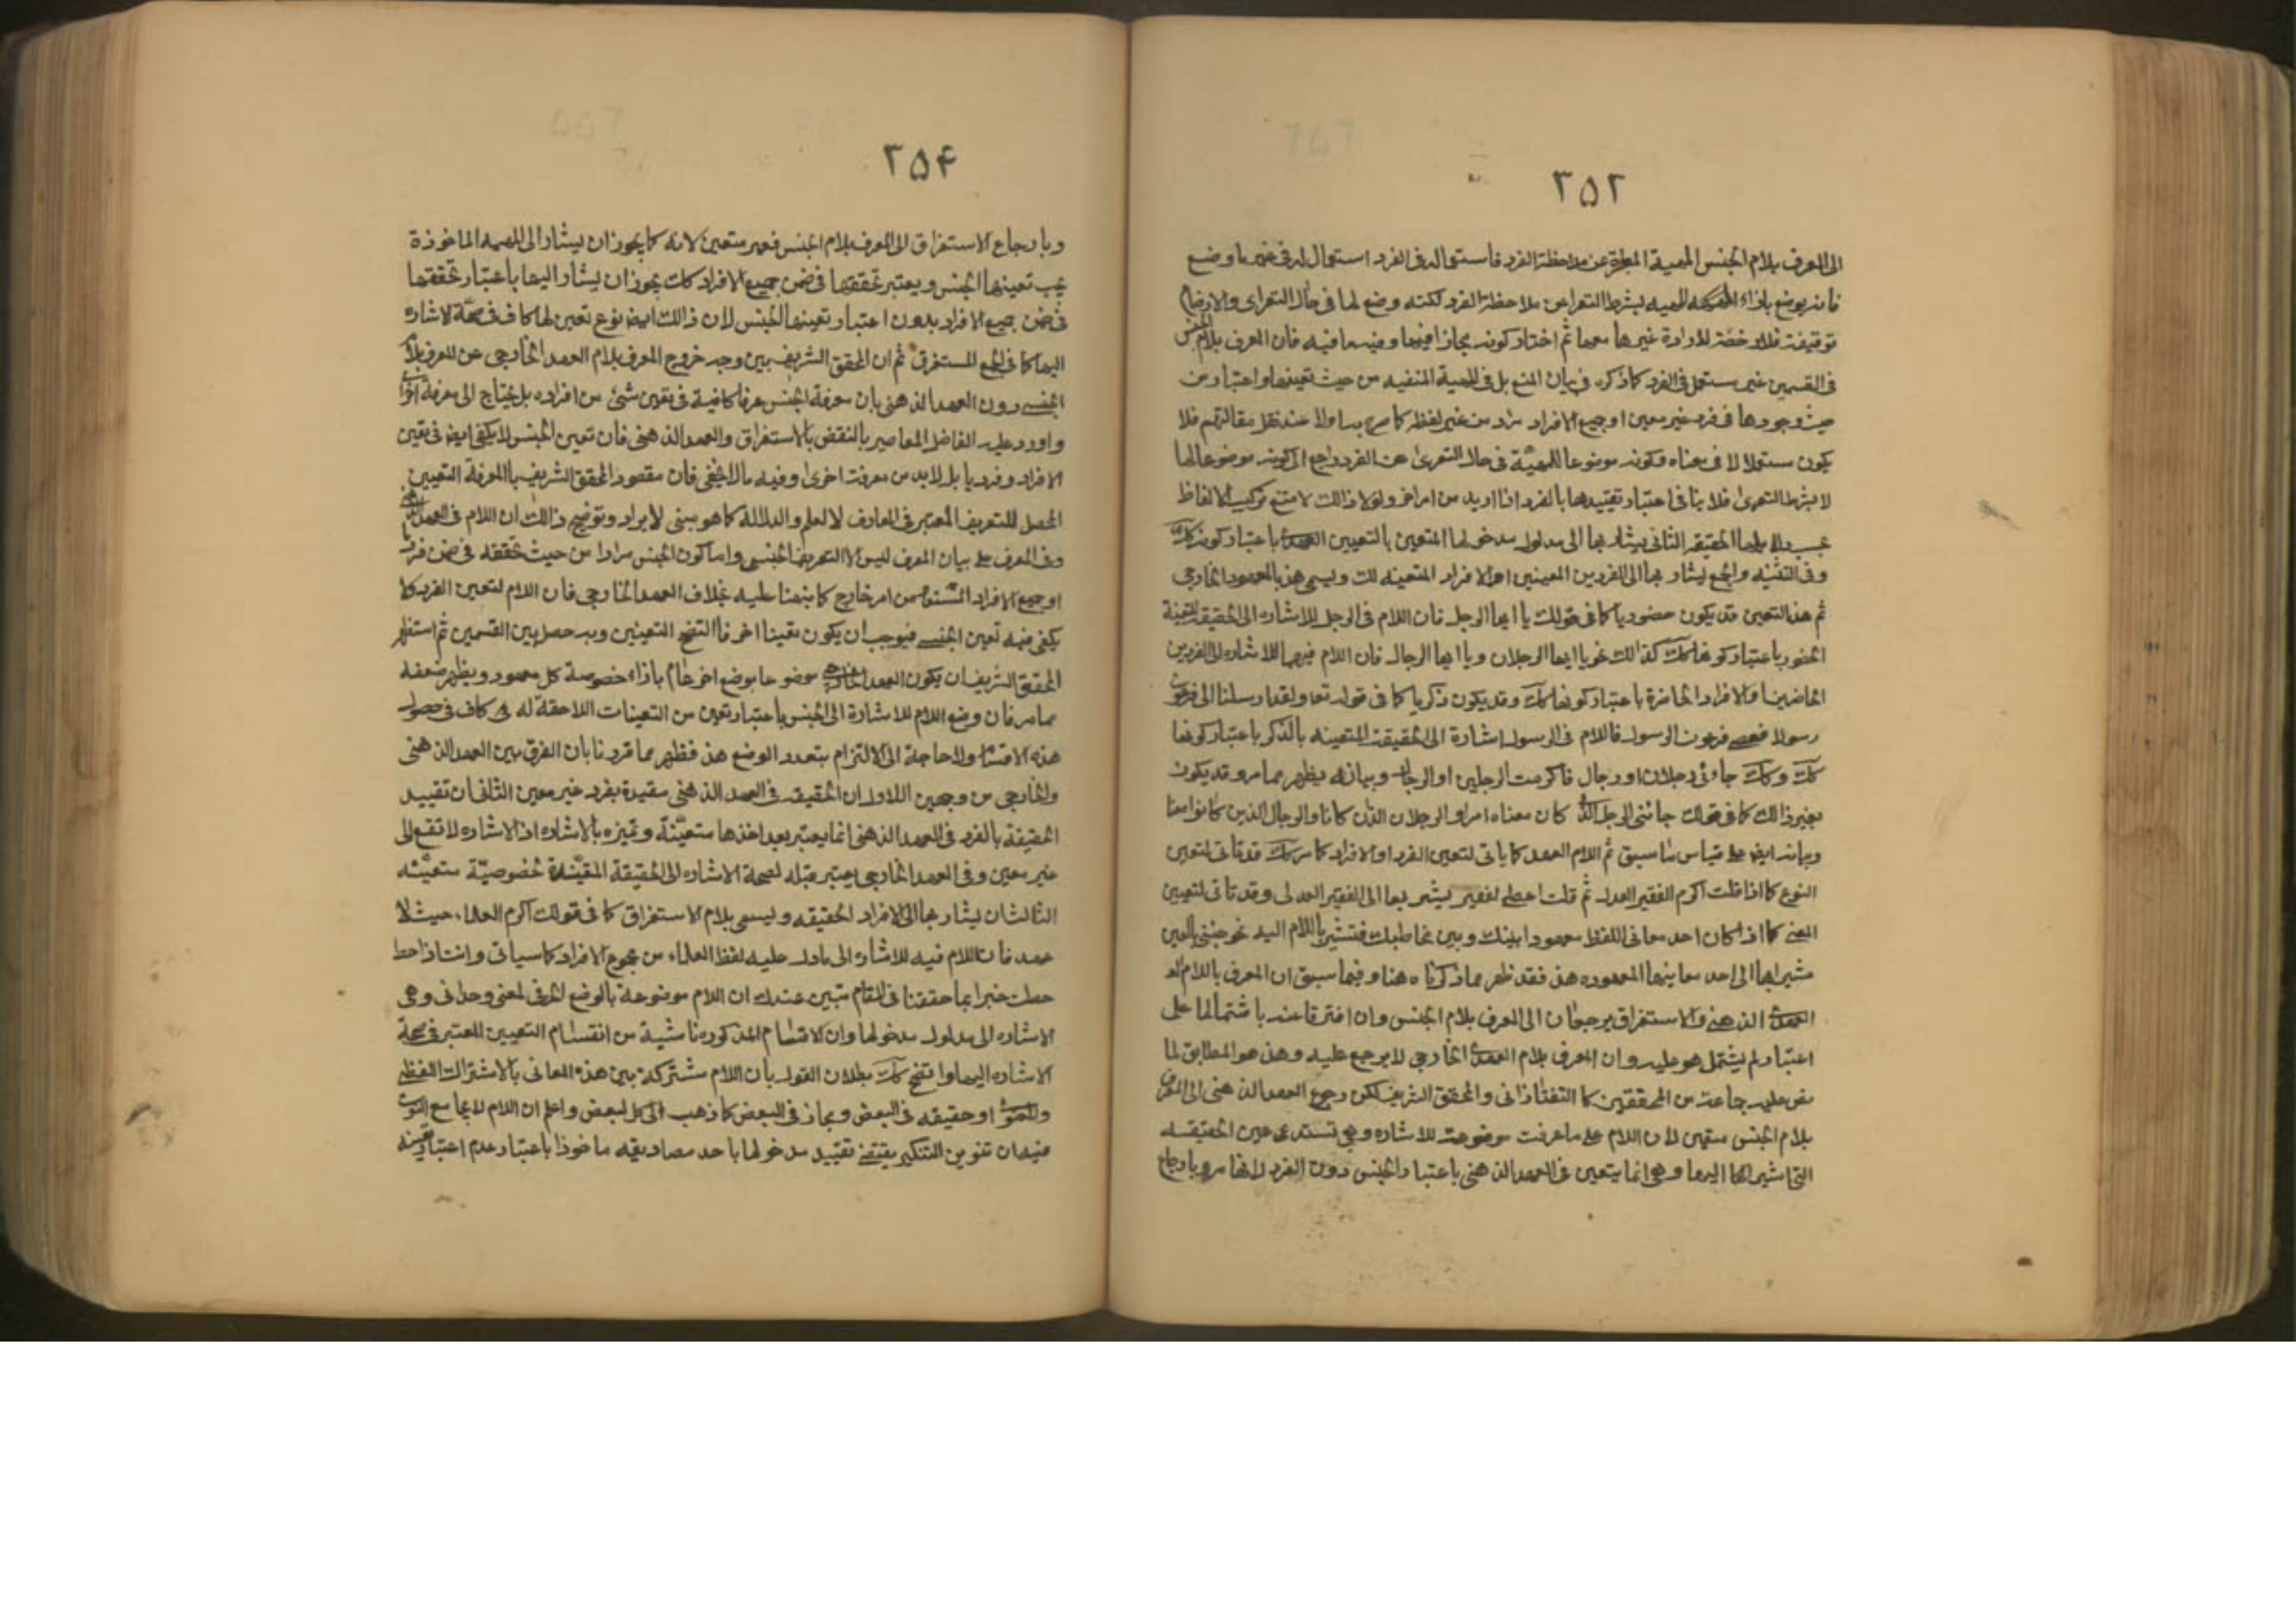 ٢٥٢
الى المعرف بلام الجنس المهية المعراة عن ملاحظة الفرد فاستعماله فى الفرد استعمال له فى غير ما وضع
فانه يوضع بازاء المهية بشرط التعراء عن ملاحظة الفرد لكنه وضع لها فى حال التعراى والاوضاع
توقيفية فلا رخصة للارادة غيرها معها ثم اختار كونه مجازا فيهما وفيه ما فيه فان المعرف بلام الجنس
فى القسمين غير مستعمل فى الفرد كما ذكره فى بيان المنع بل فى المهية المنفيه من حيث تعينها واعتبار من
حيث وجودها فى فرد غير معين او جميع الافراد يراد من غير لفظه كما صرح به اولا عند نقل مقالتهم فلا
يكون مستعملا الا فى معناه وكونه موضوعا للمهيّة فى حال التعرى عن الفرد راجع الى كونه موضوعا لها
لا بشرط التعرى فلا ينافى اعتبار تقييدها بالفرد اذا اريد من امر اخر ولولا ذالك لامتنع تركيب الالفاظ
بحسب الحقيقه الثانى يشار بها الى مدلول مدخولها المتعين بالتعيين العهدى باعتبار كونه كك
وفى التثنيه والجمع يشار بها الى الفردين المعينين او الافراد المتعينه لك ويسمى هذ بالعهود الخارجى
ثم هذ التعين قد يكون حضوريا كما فى قولك يا ايها الرجل فان اللام فى الرجل للاشاره الى الحقيقة المتعينة
الحضور باعتبار كونها كك كذالك نحو يا ايها الرجلان ويا ايها الرجال فان اللام فيهما للاشاره الى الفردين
الحاضرين او الافراد الحاضرة باعتبار كونها كك وقد يكون ذكريا كما فى قوله تعا ولقد ارسلنا الى فرعون
رسولا فعصى فرعون الرسول فاللام فى الرسول اشارة الى الحقيقة المتعينه بالذكر باعتبار كونها
كك وكك جاؤنى رجلان او رجال فاكرمت الرجلين او الرجال وبيانه يظهر مما مر وقد يكون
بغير ذالك كما فى قولك جائنى الرجل الذى كان معناه امرا والرجلان الذان كانا والرجال الذين كانوا معنا
وبيانه ايضا على قياس ما سبق ثم اللام العهد كما ياتى لتعين الفرد او الافراد كما مر كك قد تاتى لتعين
النوع كما اذا قلت اكرم الفقير العدل ثم قلت اعط الفقير يشير بها الى الفقير العدل وقد تاتى لتعيين
المعنى كما اذا كان احد معانى اللفظ معهودا بينك وبين مخاطبك فتشير باللام اليه نحو جئنى بالعين
مشيرا بها الى احد معانيها المعهوده هذ فقد ظهر مما ذكرناه هنا وفيما سبق ان المعرف باللام
العهد الذهنى والاستغراق يرجعان الى المعرف بلام الجنس وان افترقا عنه باشتمالها على
اعتبار لم يشتمل هو عليه وان المعرف بلام العهد الخارجى لا يرجع عليه وهذ هو المطابق لما
نص عليه جماعة من المحققين كالتفتازانى والمحقق الشريف لكن رجوع العهد الذهنى الى المعرف
بلام الجنس متعين لان اللام على ما عرفت موضوعة للاشاره وهى تستدعى عين الحقيقه
التى اشير بها اليها وهى انما يتعين فى العهد الذهنى باعتبار الجنس دون الفرد لانها مر وبارجاع
٢٥۴
وبارجاع الاستغراق الى المعرف بلام الجنس فغير متعين لانه كما يجوز ان يشار الى المهيه الماخوذة
بحسب تعينها الجنس ويعتبر تحققها فى ضمن جميع الافراد كك يجوز ان يشار اليها باعتبار تحققها
فى ضمن جميع الافراد بدون اعتبار تعينها الجنس لان ذالك ايضا نوع تعين لها كاف فى صحّة الاشاره
اليها كما فى الجمع المستغرق ثم ان المحقق الشريف بين وجه خروج المعرف بلام العهد الخارجى عن المعرف بلام
الجنس دون العهد الذهنى بان معرفة الجنس عرفا كافية فى تعين شئ من افراده بل يحتاج الى معرفة اخرى
واورد عليه الفاضل المعاصر بالنقض بالاستغراق والعهد الذهنى فان تعين الجنس لا يكفى ايضا فى تعين
الافراد وفرديا بل لا بد من معرفة اخرى وفيه ما لا يخفى فان مقصود المحقق الشريف بالمعرفة التعيين
المحصل للتعريف المعتبر فى المعارف لا العلم والدلالة كما هو مبنى الايراد وتوضيح ذالك ان اللام فى العهد الذهنى
وفى المعرف على بيان المعرف ليس الا التعريف الجنسى واما كون الجنس مرادا من حيث تحققه فى ضمن فرد
او جميع الافراد من امر خارج كما نبهنا عليه بخلاف العهد الخارجى فان اللام لتعين الفرد كلا
يكفى فيه تعين الجنس فيوجب ان يكون تعينا اخر فاتضح التعينين وبه حصل بين القسمين ثم استظهر
المحقق الشريف ان يكون العهد الخارجى موضوعا بوضع اخر عام بازاء خصوصة كل معهود ويظهر ضعفه
مما مر فان وضع اللام للاشارة الى الجنس باعتبار تعين من التعينات اللاحقة له كاف فى حصول
هذه الاقسام ولا حاجة الى الالتزام بتعدد الوضع هذ فظهر مما قررنا بان الفرق بين العهد الذهنى
والخارجى من وجهين الاول ان الحقيقه فى العهد الذهنى مقيدة بفرد غير معين الثانى ان تقييد
الحقيقة بالفرد فى العهد الذهنى انما يعتبر بعد اخذها متعيّنة وتميزه بالاشاره اذ الاشاره لا تقع الى
غير معين وفى العهد الخارجى يعتبر قبله لصحة الاشاره الى الحقيقة المقيّدة بخصوصيّة متعيّنه
الثالث ان يشار بها الى الافراد الحقيقه ويسمى بلام الاستغراق كما فى قولك اكرم العلماء حيث لا
عهد فان اللام فيه للاشاره الى ما دل عليه لفظ العلماء من مجموع الافراد كما سياتى وانت اذا احط
حطت خبرا بما حققنا فى المقام تبين عندك ان اللام موضوعة بالوضع الحرفى لمعنى وحدانى وهى
الاشاره الى مدلول مدخولها وان الاقسام المذكوره ناشية من انقسام التعيين المعتبر فى صحة
الاشاره اليها واتضح كك بطلان القول بان اللام مشتركة بين هذه المعانى بالاشتراك اللفظى
والمعنوى او حقيقه فى البعض ومجاز فى البعض كما ذهب الى كل لبعض واعلم ان اللام لا يجامع التنوين
فيه ان تنوين التنكير يقتضى تقييد مدخولها باحد مصاديقه ماخوذا باعتبار عدم اعتبار تعينه